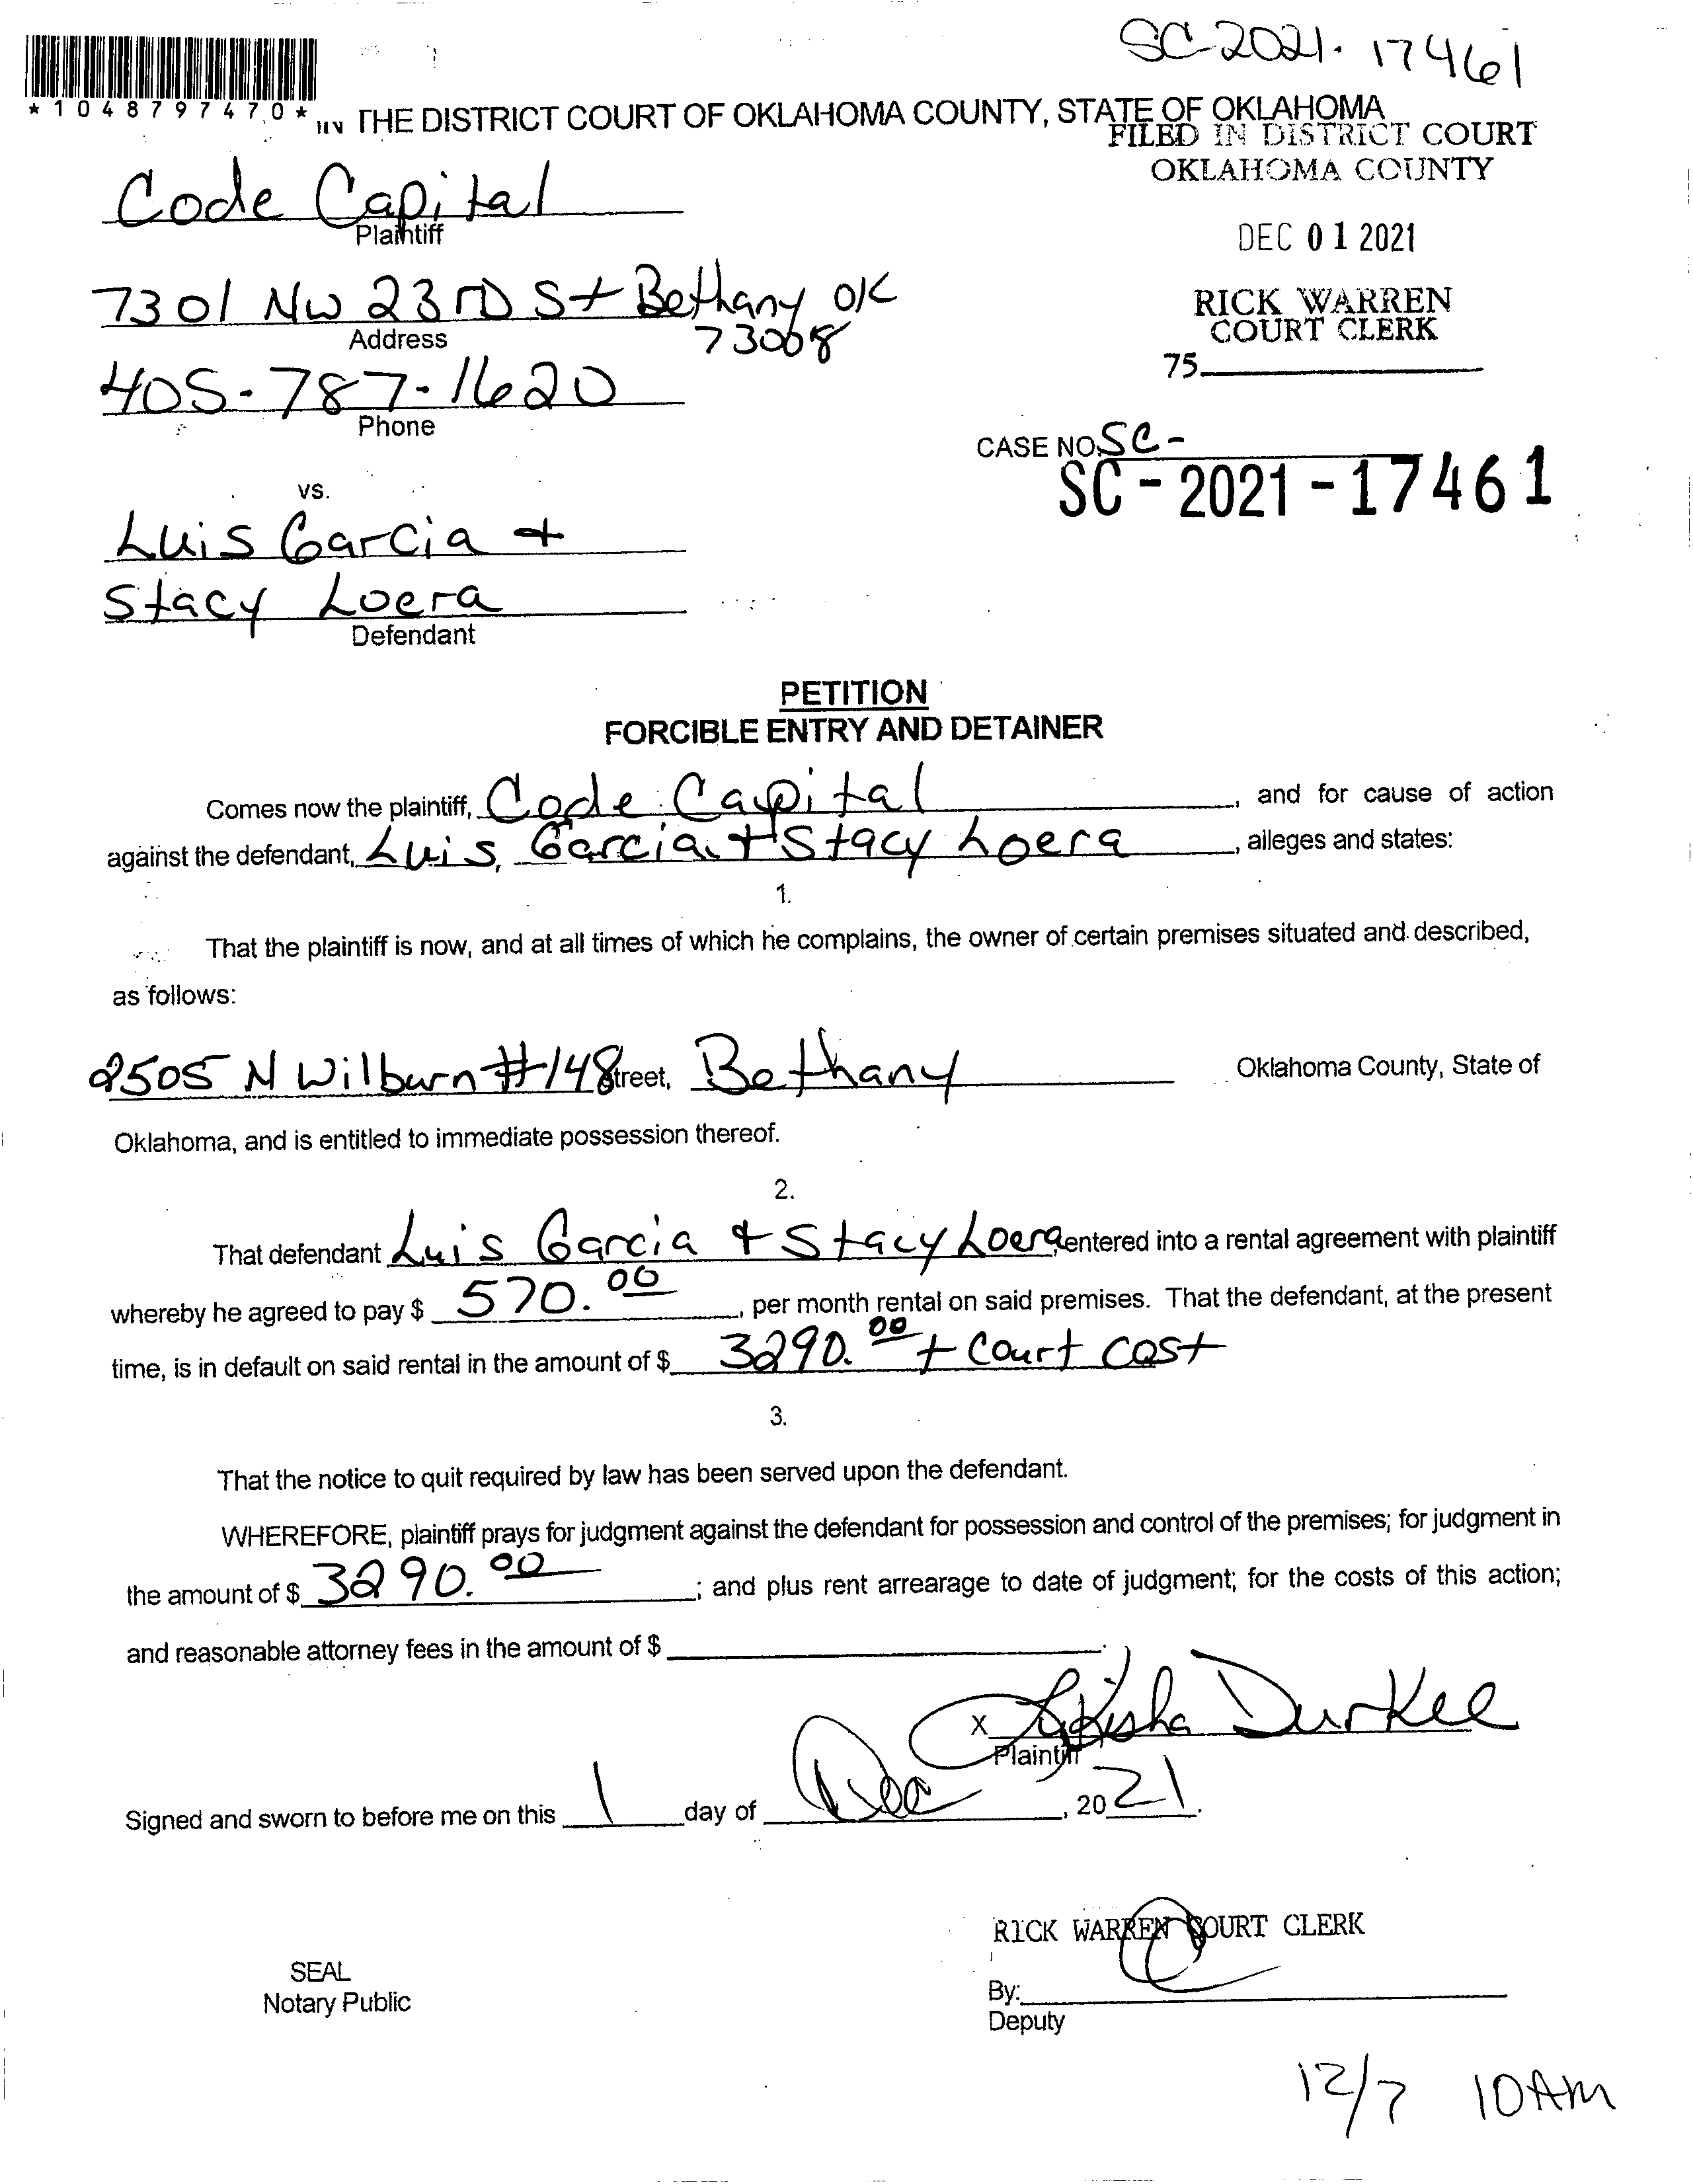 SC-2021-17461
*1048797470*
IN THE DISTRICT COURT OF OKLAHOMA COUNTY, STATE OF OKLAHOMA
FILED IN DISTRICT COURT
OKLAHOMA COUNTY
Code Capital
Plaintiff
DEC 01 2021
7301 NW 23RD St Bethany OK
73008
Address
RICK WARREN
COURT CLERK
75
405-787-1620
Phone
CASE NO. SC-
SC-2021-17461
vs.
Luis Garcia +
Stacy Loera
Defendant
PETITION
FORCIBLE ENTRY AND DETAINER
Comes now the plaintiff, Code Capital, and for cause of action
against the defendant, Luis, Garcia + Stacy Loera, alleges and states:
1.
That the plaintiff is now, and at all times of which he complains, the owner of certain premises situated and described,
as follows:
2505 N Wilburn #148 Street, Bethany Oklahoma County, State of
Oklahoma, and is entitled to immediate possession thereof.
2.
That defendant Luis Garcia + Stacy Loera entered into a rental agreement with plaintiff
whereby he agreed to pay $ 570.00, per month rental on said premises. That the defendant, at the present
time, is in default on said rental in the amount of $ 3290.00 + Court Cost
3.
That the notice to quit required by law has been served upon the defendant.
WHEREFORE, plaintiff prays for judgment against the defendant for possession and control of the premises; for judgment in
the amount of $ 3290.00; and plus rent arrearage to date of judgment; for the costs of this action;
and reasonable attorney fees in the amount of $
X Durkee
Plaintiff
Signed and sworn to before me on this 1 day of Dec, 2021.
RICK WARREN COURT CLERK
SEAL
Notary Public
By:
Deputy
12/7 10AM